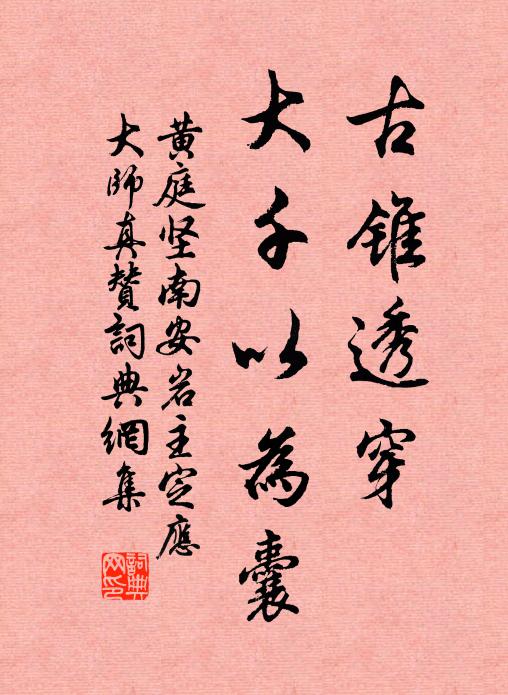 古錐透穿
大千以為囊
黄庭坚南安岩主定應
大師真贊詞典網集
詞典
网印